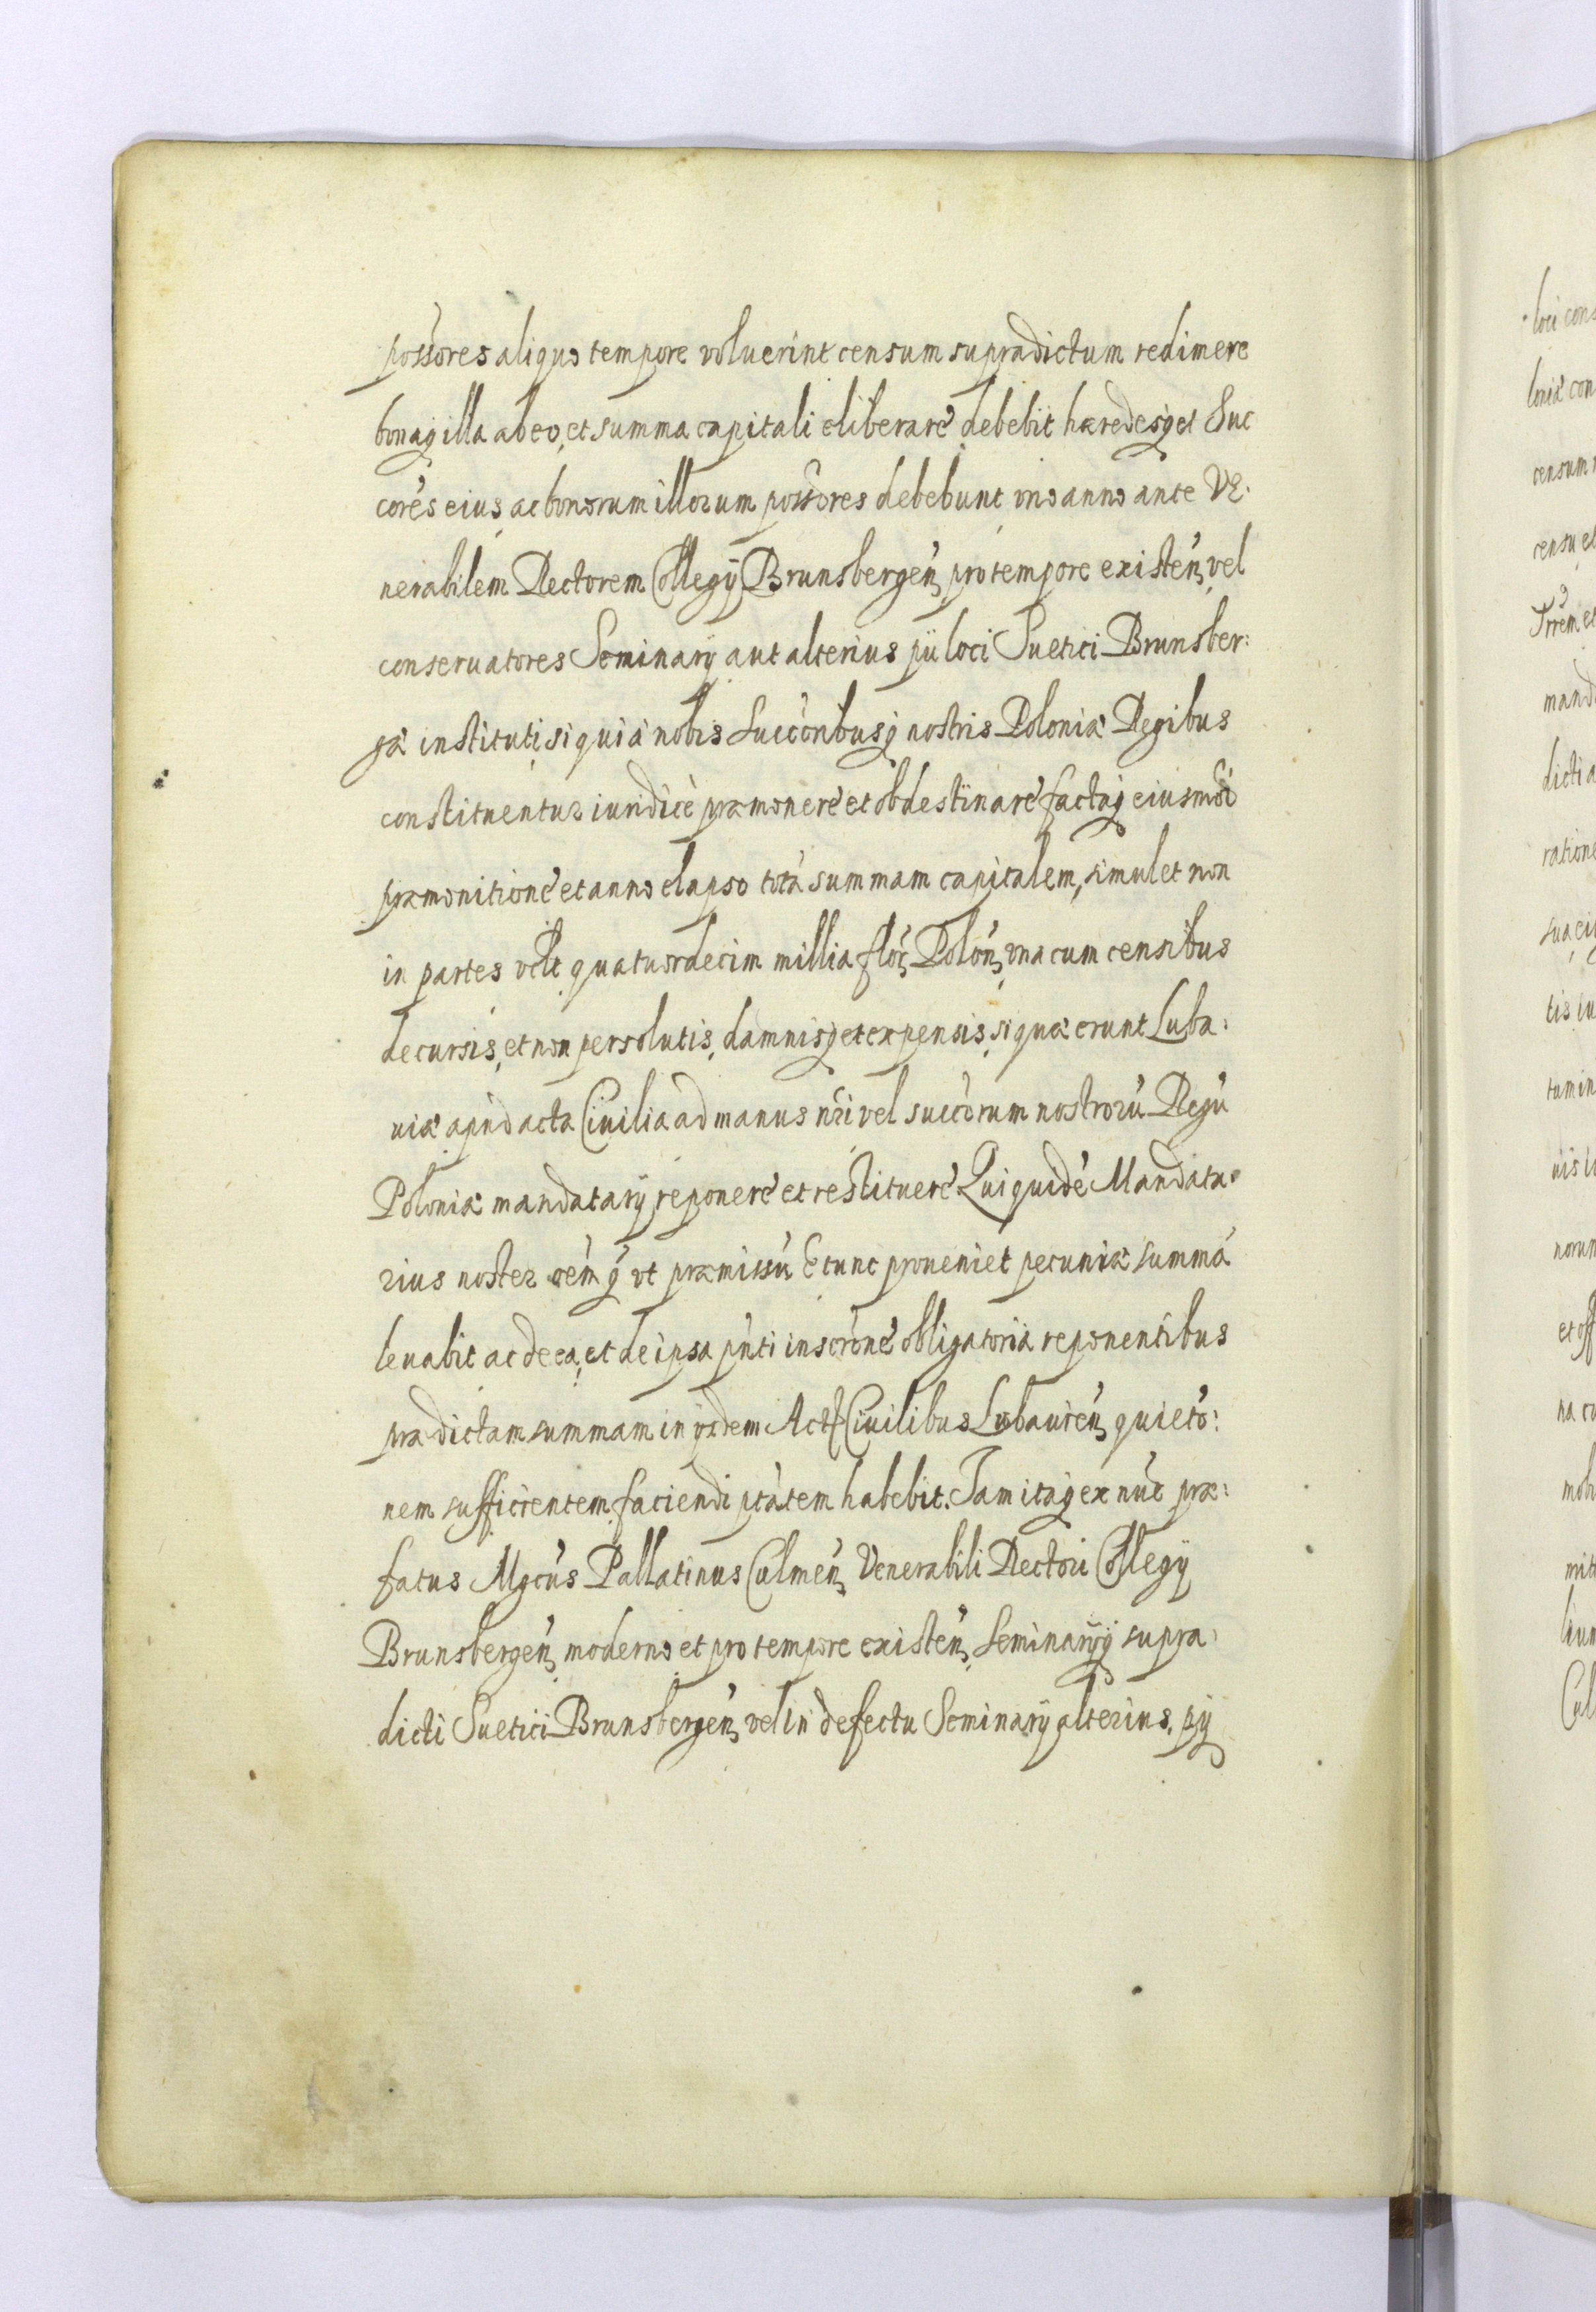 possores aliquo tempore voluerint censum supradictum redimere
bonaq illa ab eo, et summa capitali eliberare debebit haeredesq et Suc
cores eius ac bonorum illorum possores debebunt vno anno ante Ve-
nerabilem Rectorem Collegÿ Brunsbergeń, pro tempore existeń, vel
conseruatores Seminarÿ aut alterius pii loci Suetici Brunsber:
gæ instituti, si qui a nobis Succoribusq nostris Poloniæ Regibus
constituentur iuridice præmonere et obdestinare factaq eiusmoi
præmonitione et anno elapso totā summam capitalem, simul et non
in partes vclt quatuordecim millia floŕ Poloń, vna cum censibus
decursis, et non persolutis, damnisq et expensis, si quæ erunt Luba:
uiæ apud acta Ciuilia ad manus nri vel succorum nostrorū Regū
Poloniæ mandatarÿ reponere et restituere Qui quidē Mandata-
rius noster præmissū Etunc proueniet pecuniæ summā
leuabit ac de ea, et de ipsa pnti inscrōne obligatoria reponentibus
prædictam summam in ÿsdem Actis Ciuilibus Lubauień, quietō:
nem sufficientem faciendi ptātem habebit. Iam itaq ex nūc præ:
fatus Mgcus Pallatinus Culmeń, Venerabili Rectori Collegÿ
Brunsbergeń, moderno et pro tempore existeń, Seminarÿq supra:
dicti Suetici Brunsbergeń, vel in defectu Seminarÿ alterius, pÿ
loci cons
loniæ con
censum
censu et
mand
dicti a
ratione
sua ei
tis
tum in
et off
na